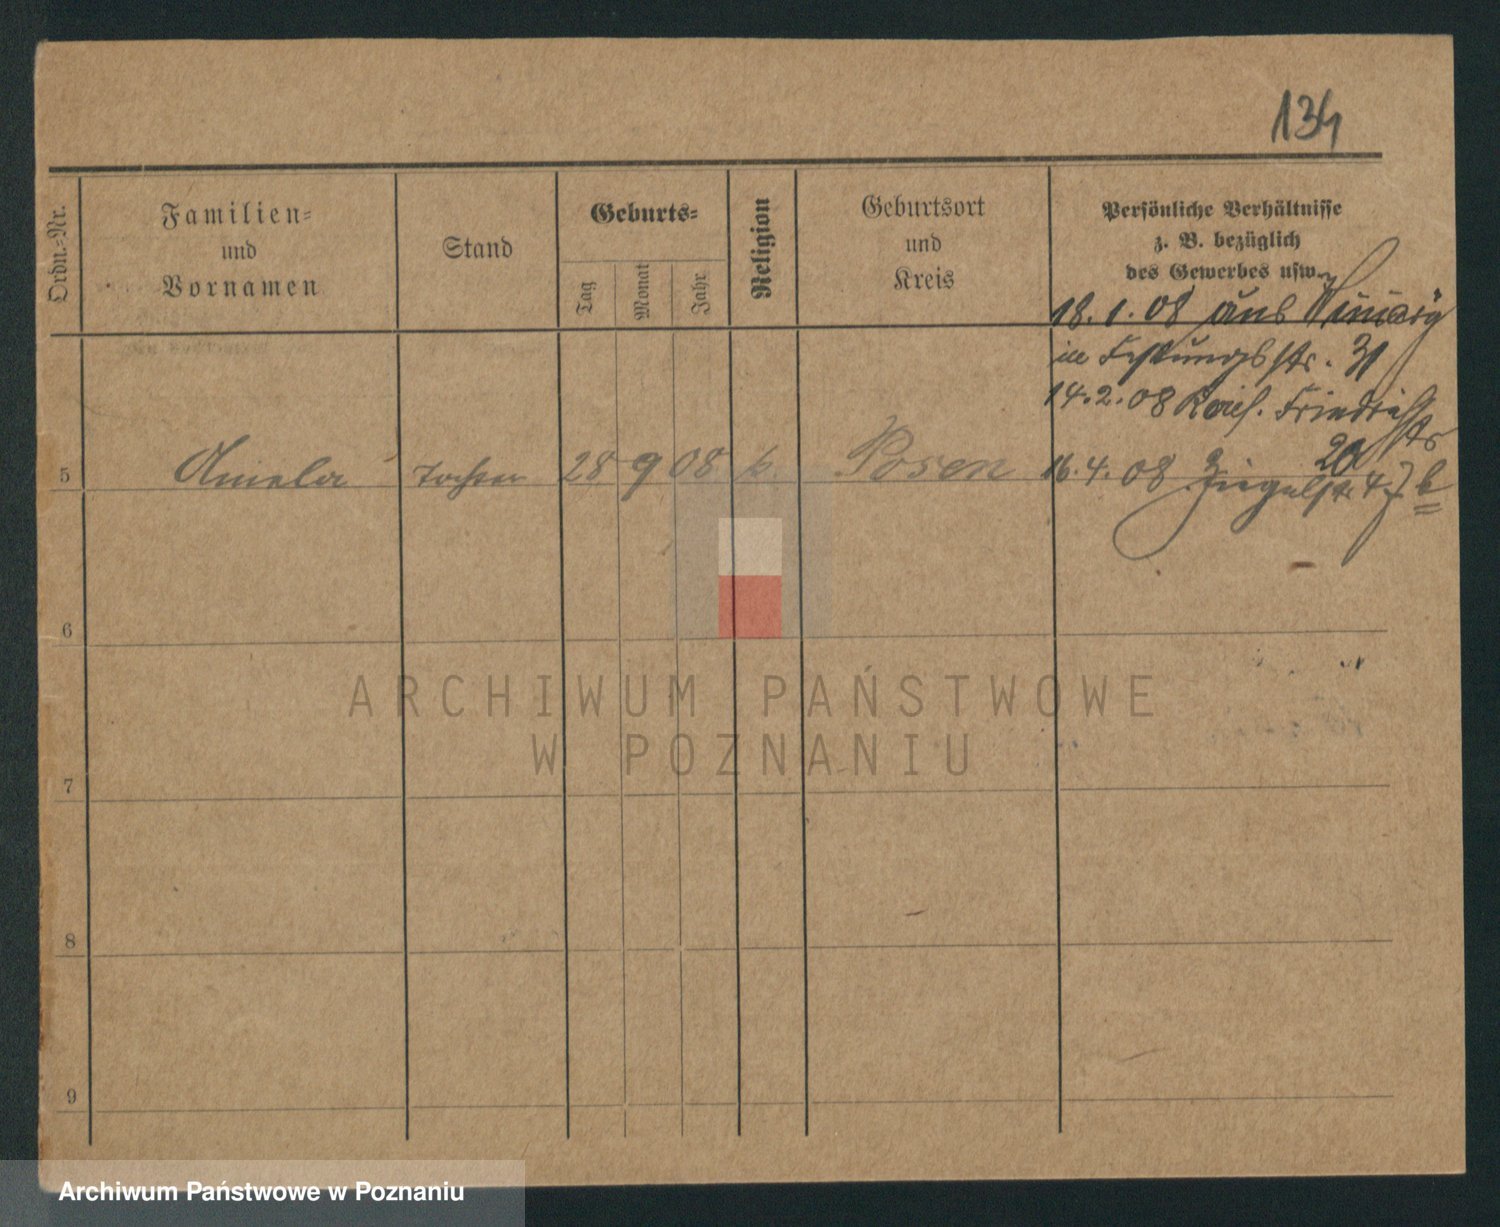 134
Ordn.-Nr.
Familien-
und
Vornamen
Stand
Geburts-
Tag
Monat
Jahr
Religion
Geburtsort
und
Kreis
Persönliche Verhältnisse
z. B. bezüglich
des Gewerbes usw.
18.1.08 aus
in Festungsstr. 31
14.2.08 Kais. Friedrichstr
20
5 Aniela Tochter 28 9 08 k. Posen 16.4.08 Ziegelstr. 4
6
7
8
9
ARCHIWUM PAŃSTWOWE
W POZNANIU
Archiwum Państwowe w Poznaniu